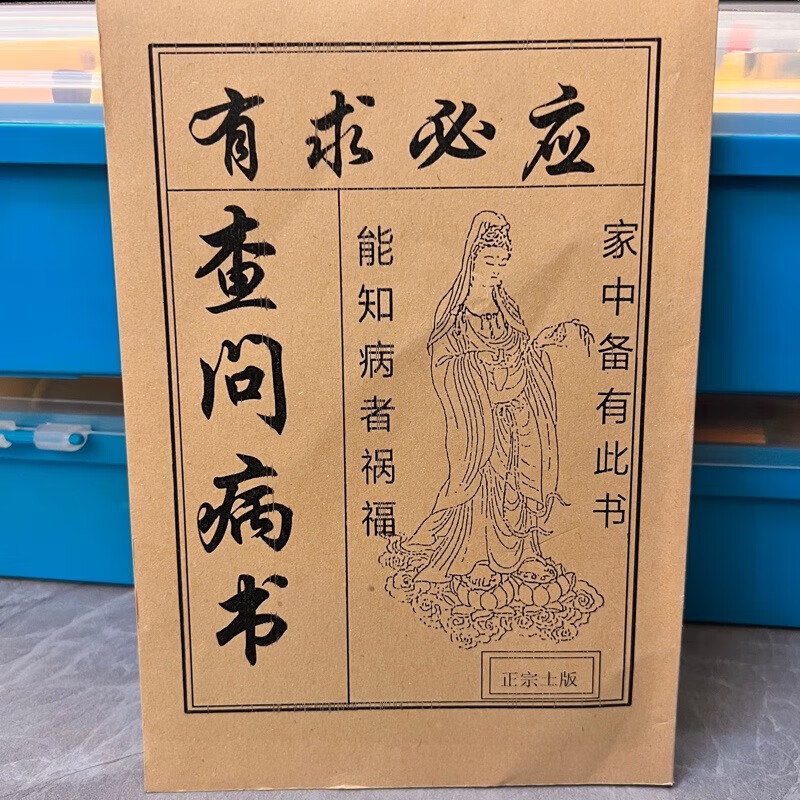 有求必应
查问病书
家中备有此书
能知病者祸福
正宗土版